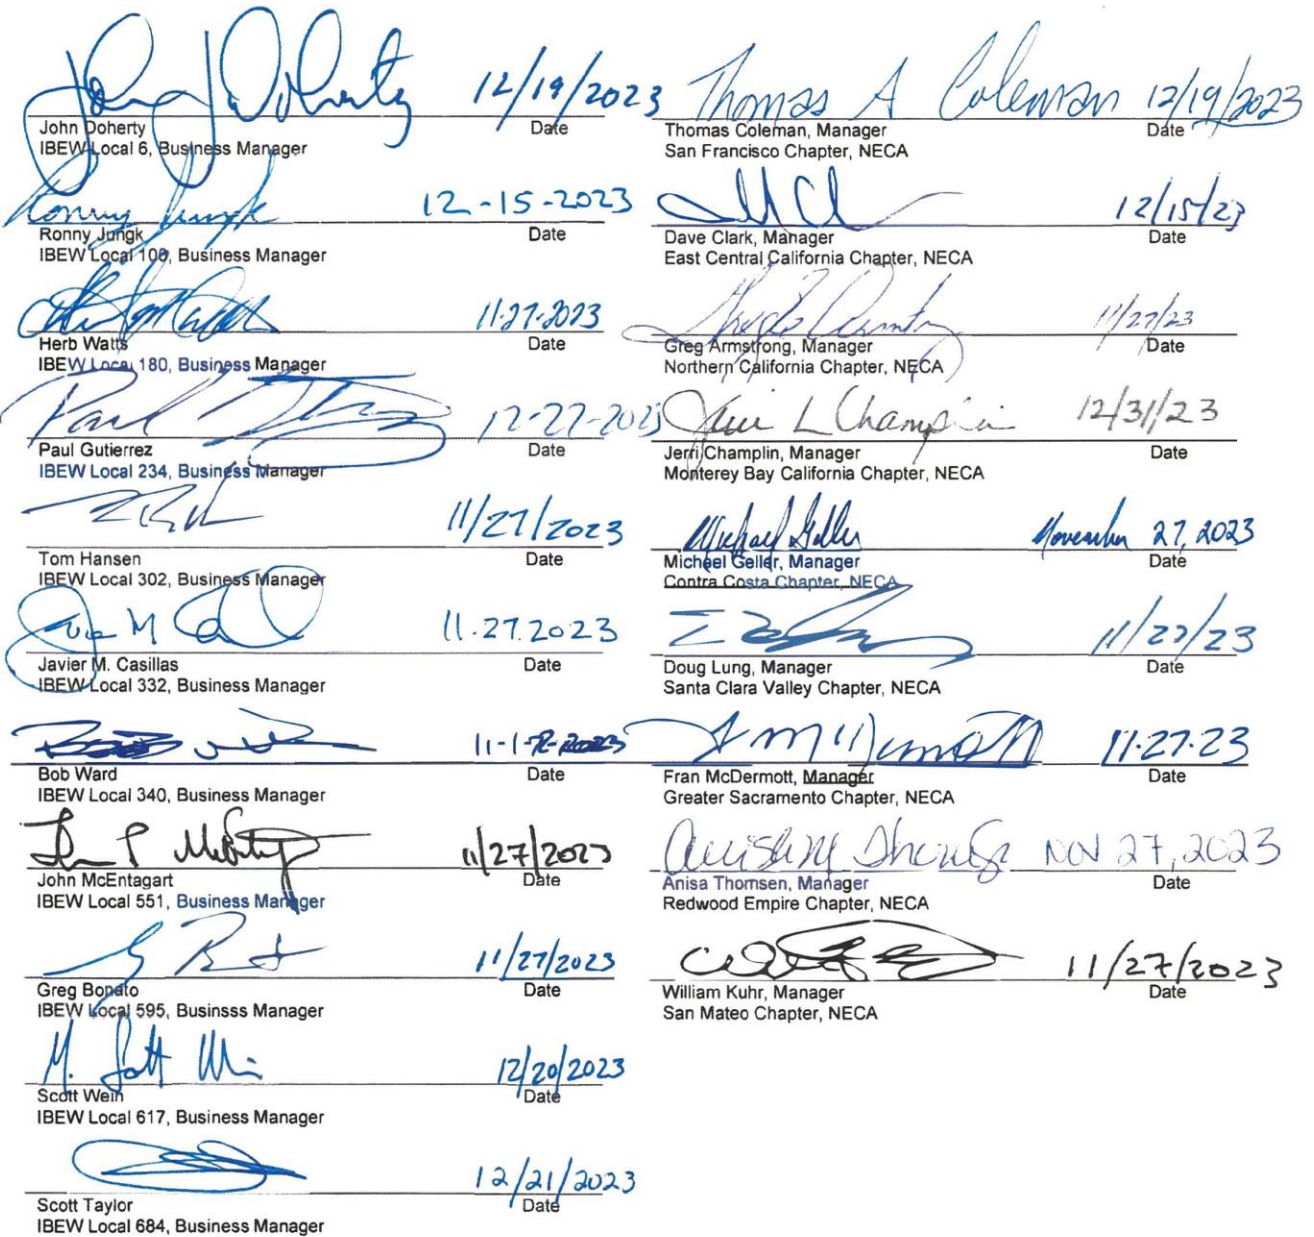 John J Doherty 12/19/2023
John Doherty Date
IBEW Local 6, Business Manager
Ronny Jungk 12-15-2023
Ronny Jungk Date
IBEW Local 100, Business Manager
11-27-2023
Herb Watts Date
IBEW Local 180, Business Manager
Paul 12-22-2023
Paul Gutierrez Date
IBEW Local 234, Business Manager
11/27/2023
Tom Hansen Date
IBEW Local 302, Business Manager
11.27.2023
Javier M. Casillas Date
IBEW Local 332, Business Manager
Bob Ward Date
IBEW Local 340, Business Manager
11/27/2023
John McEntagart Date
IBEW Local 551, Business Manager
11/27/2023
Greg Bonato Date
IBEW Local 595, Businsss Manager
M. Scott Wein 12/20/2023
Scott Wein Date
IBEW Local 617, Business Manager
12/21/2023
Scott Taylor Date
IBEW Local 684, Business Manager
Thomas A Coleman 12/19/2023
Thomas Coleman, Manager Date
San Francisco Chapter, NECA
12/15/23
Dave Clark, Manager Date
East Central California Chapter, NECA
11/27/23
Greg Armstrong, Manager Date
Northern California Chapter, NECA
Jerri L Champlin 12/31/23
Jerri Champlin, Manager Date
Monterey Bay California Chapter, NECA
Michael Geller November 27, 2023
Michael Geller, Manager Date
Contra Costa Chapter, NECA
11/27/23
Doug Lung, Manager Date
Santa Clara Valley Chapter, NECA
11.27.23
Fran McDermott, Manager Date
Greater Sacramento Chapter, NECA
NOV 27, 2023
Anisa Thomsen, Manager Date
Redwood Empire Chapter, NECA
11/27/2023
William Kuhr, Manager Date
San Mateo Chapter, NECA